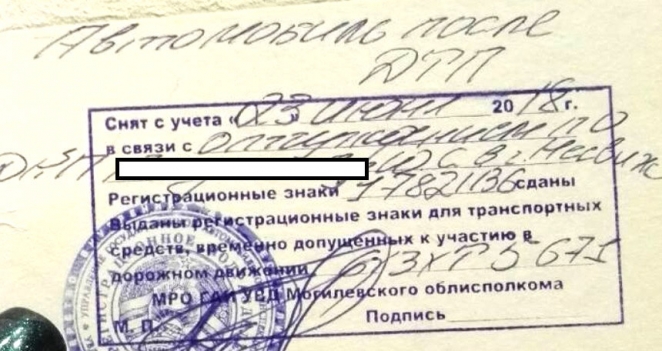 Автомобиль после
ДТП
Снят с учета «23» июня 2018 г.
в связи с отчуждением по
в г. Несвиж
Регистрационные знаки 1782ІІЗ6 сданы
Выданы регистрационные знаки для транспортных
средств, временно допущенных к участию в
дорожном движении 5671
МРО ГАИ УВД Могилевского облисполкома
М. П.
Подпись